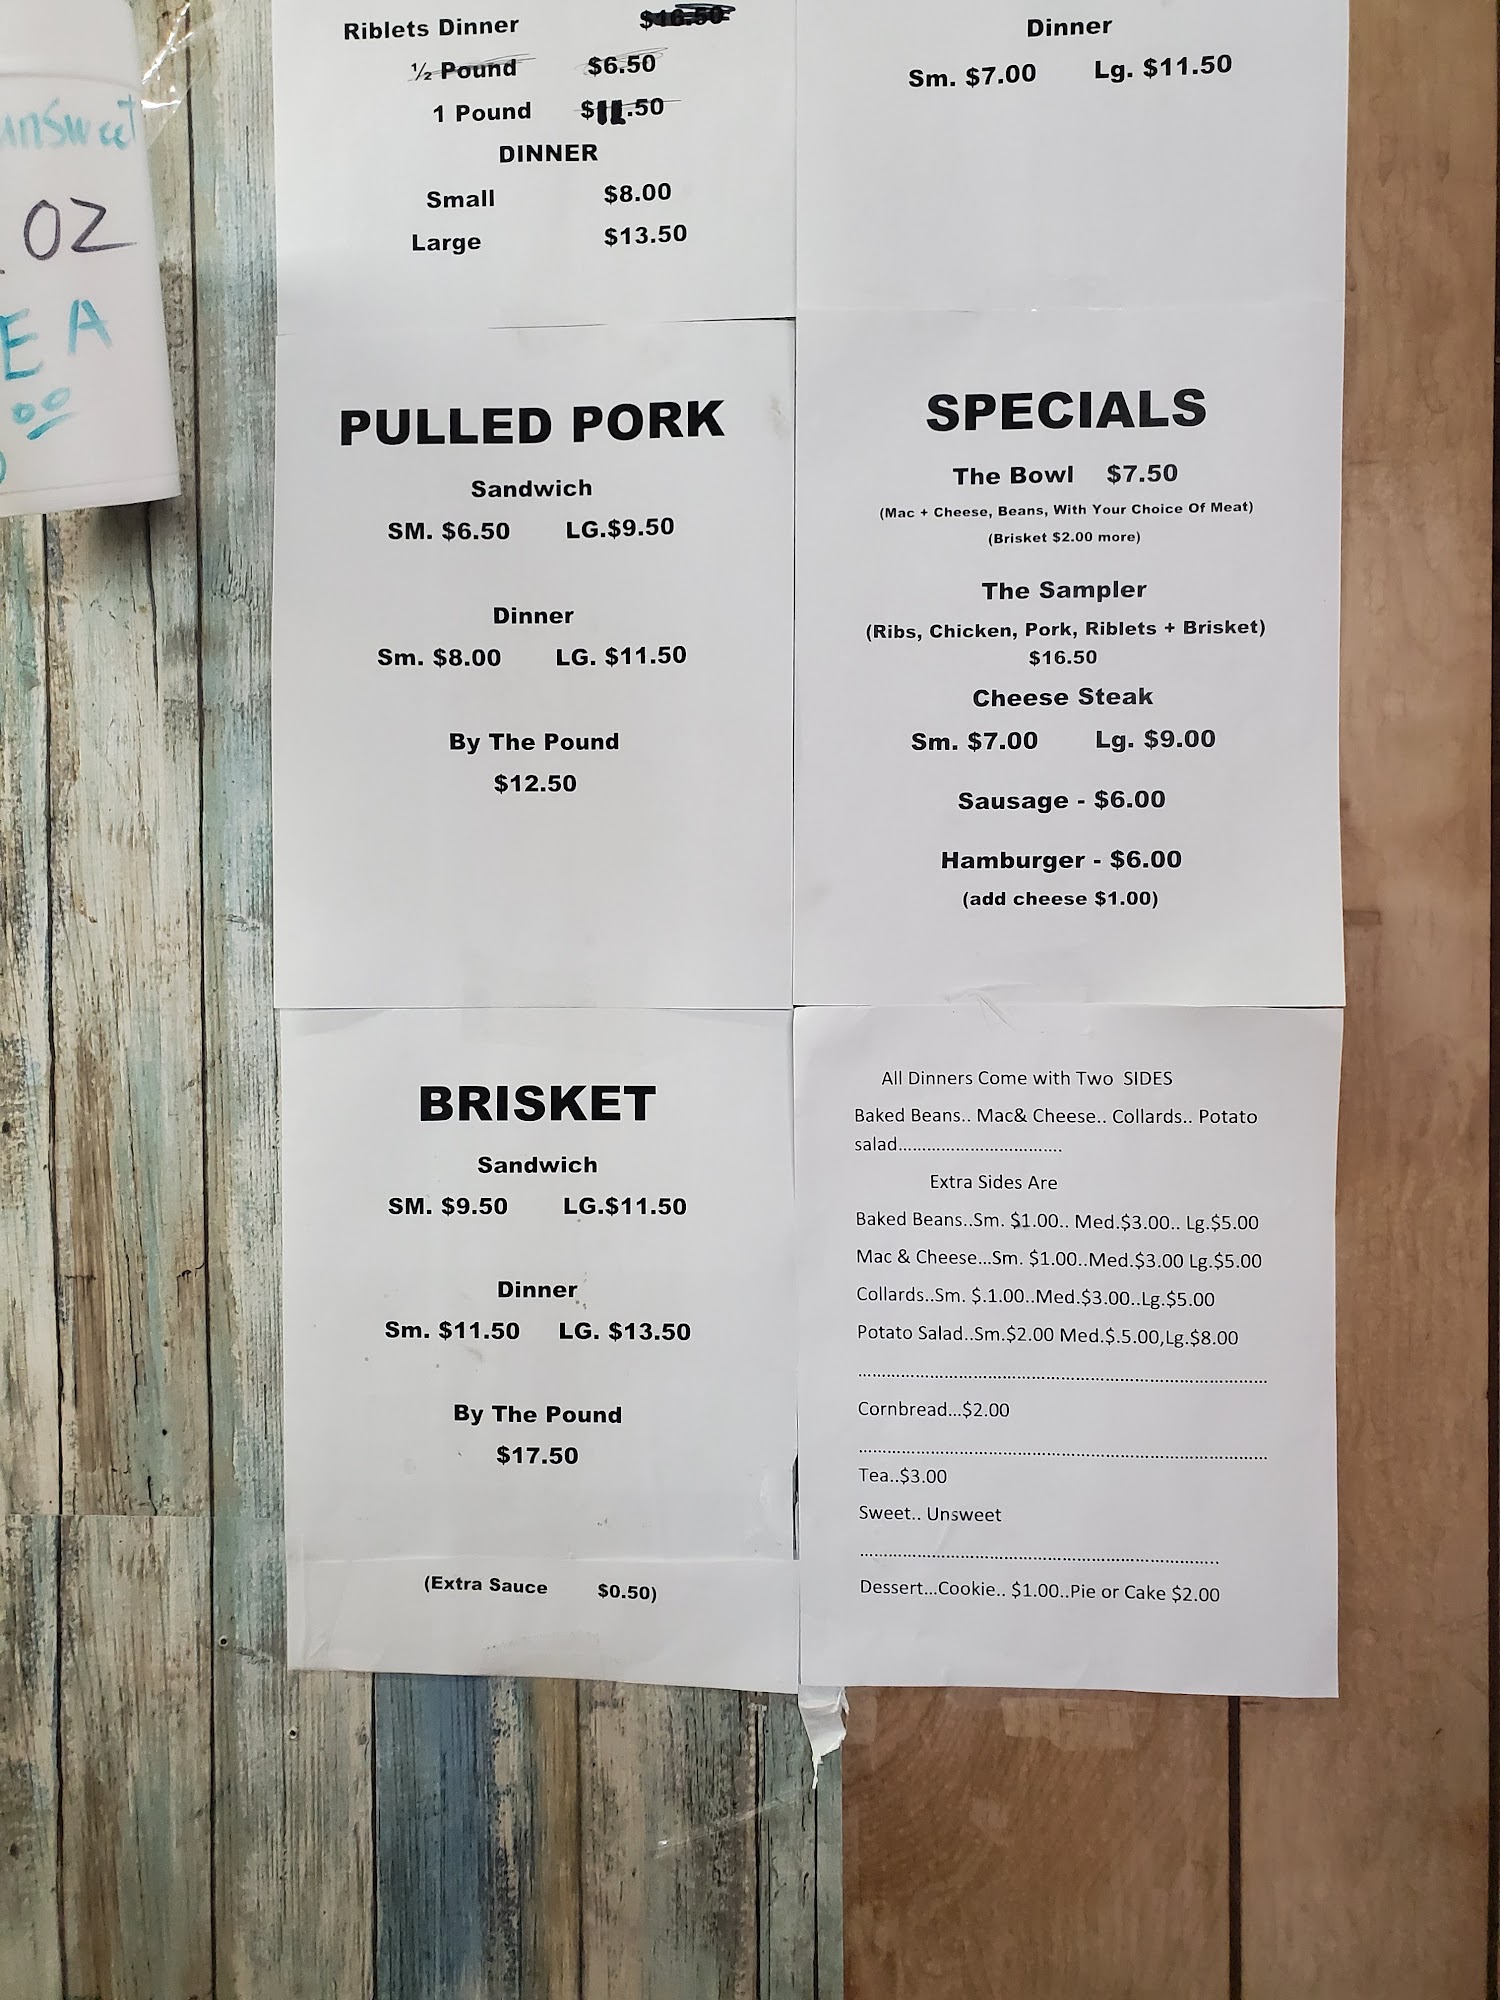 unsweet
OZ
EA
00
Riblets Dinner $16.50
½ Pound $6.50
1 Pound $11.50
DINNER
Small $8.00
Large $13.50
Dinner
Sm. $7.00 Lg. $11.50
PULLED PORK
Sandwich
SM. $6.50 LG.$9.50
Dinner
Sm. $8.00 LG. $11.50
By The Pound
$12.50
SPECIALS
The Bowl $7.50
(Mac + Cheese, Beans, With Your Choice Of Meat)
(Brisket $2.00 more)
The Sampler
(Ribs, Chicken, Pork, Riblets + Brisket)
$16.50
Cheese Steak
Sm. $7.00 Lg. $9.00
Sausage - $6.00
Hamburger - $6.00
(add cheese $1.00)
BRISKET
Sandwich
SM. $9.50 LG.$11.50
Dinner
Sm. $11.50 LG. $13.50
By The Pound
$17.50
(Extra Sauce $0.50)
All Dinners Come with Two SIDES
Baked Beans.. Mac& Cheese.. Collards.. Potato
salad..................................
Extra Sides Are
Baked Beans..Sm. $1.00.. Med.$3.00.. Lg.$5.00
Mac & Cheese...Sm. $1.00..Med.$3.00 Lg.$5.00
Collards..Sm. $.1.00..Med.$3.00..Lg.$5.00
Potato Salad..Sm.$2.00 Med.$.5.00,Lg.$8.00
Cornbread...$2.00
Tea..$3.00
Sweet.. Unsweet
Dessert...Cookie.. $1.00..Pie or Cake $2.00